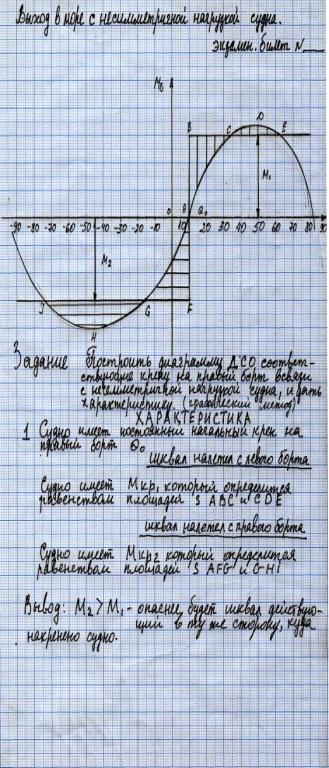 Выход в море с несимметричной нагрузкой судна.
экзамен. билет N
Mθ
B C D E
M₁
0 A
-90 -80 -70 -60 -50 -40 -30 -20 -10 10 Q₀ 20 30 40 50 60 70 80 90
M₂
J G F
H
Задание Построить диаграмму ДСО соответ-
ствующую крену на правый борт в связи
с несимметричной нагрузкой судна, и дать
характеристику. (графический метод)
ХАРАКТЕРИСТИКА
1 Судно имеет постоянный начальный крен на
правый борт Q₀
шквал налетел с левого борта
Судно имеет Мкр₁ который определится
равенством площадей S ABC и CDE
шквал налетел с правого борта
Судно имеет Мкр₂ который определится
равенством площадей S AFG и GHi
Вывод: M₂ > M₁ - опаснее будет шквал действую-
щий в ту же сторону, куда
накренено судно.